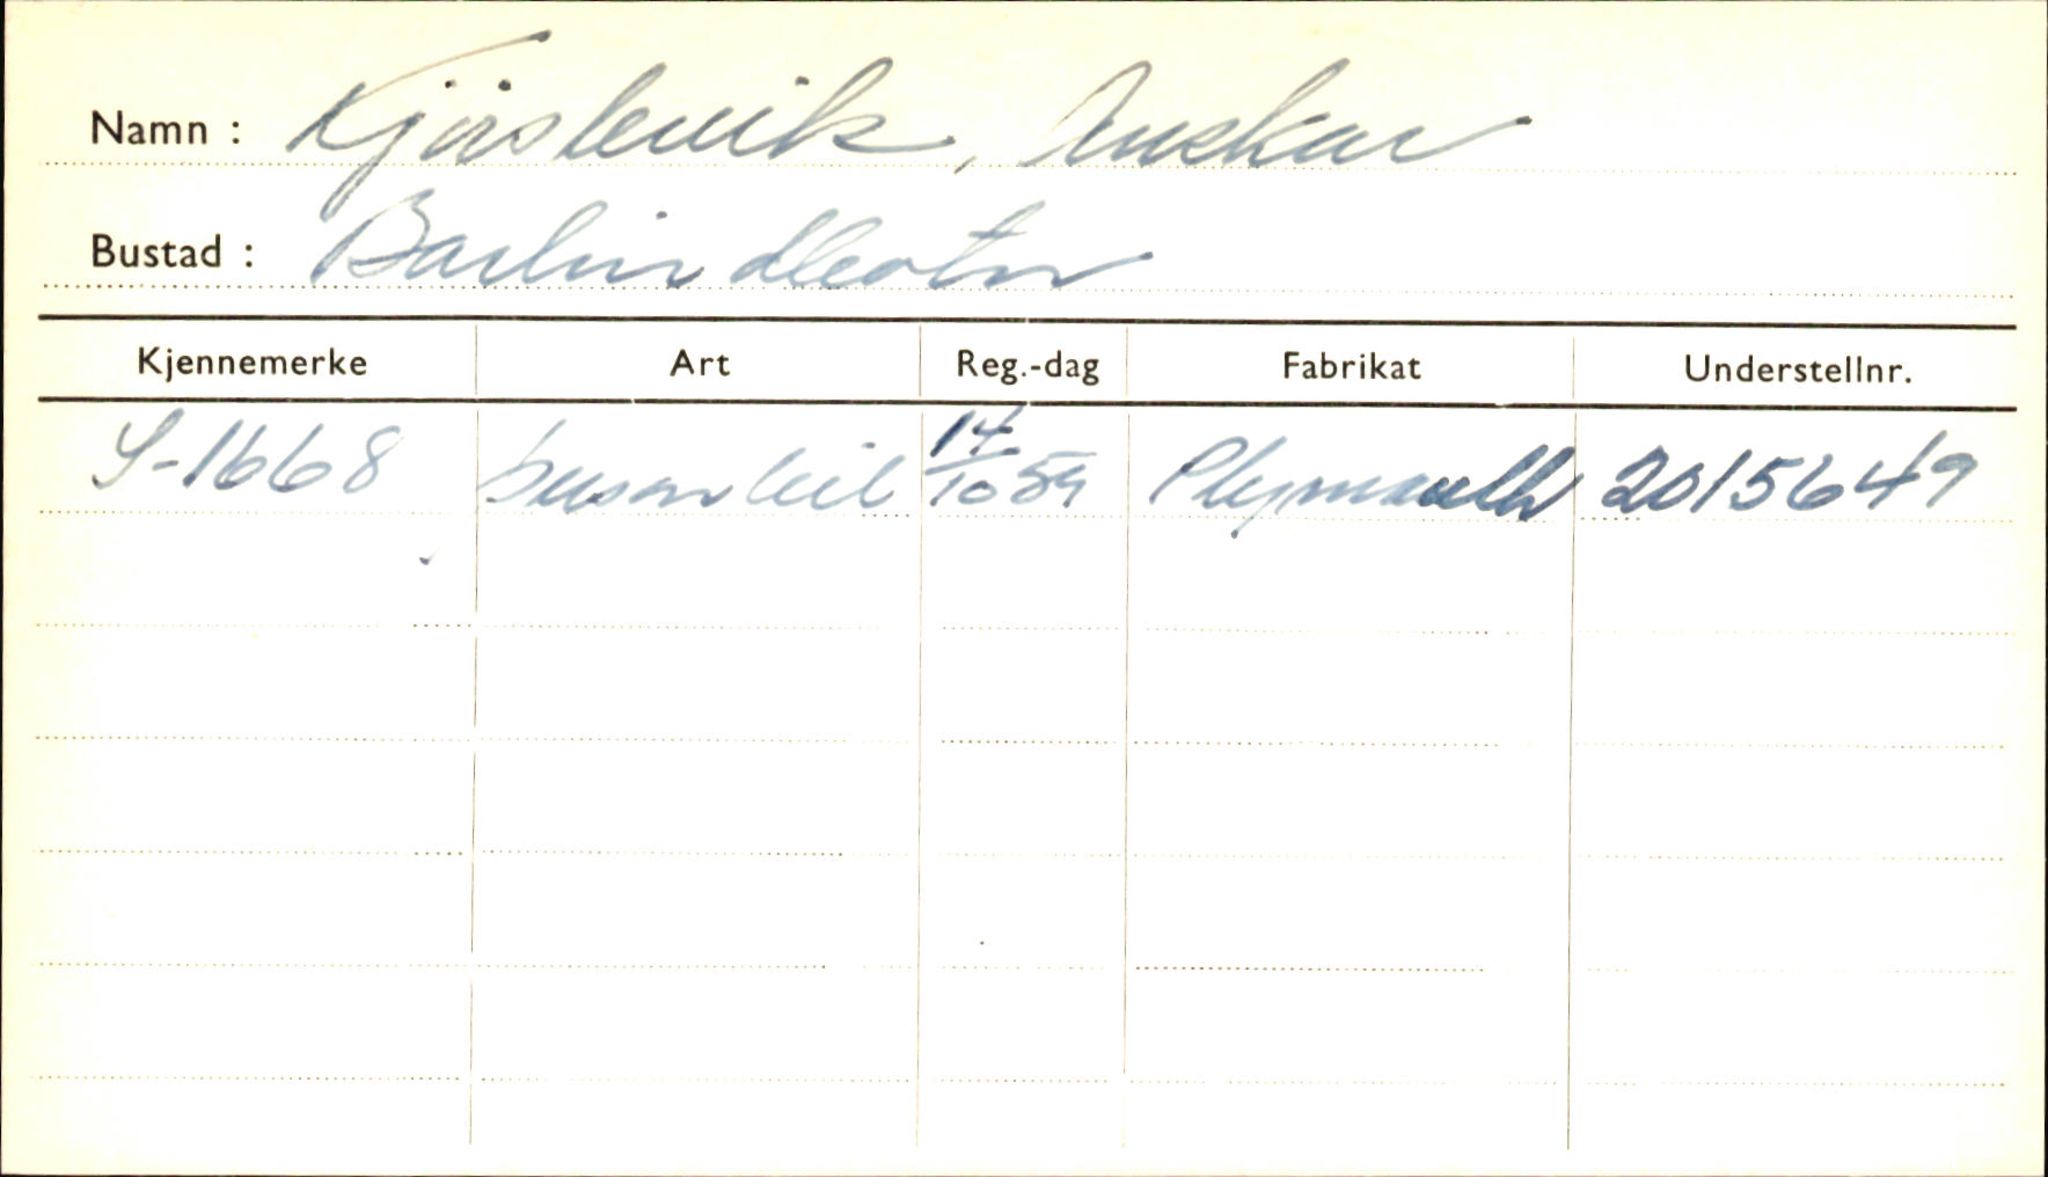 Namn : Kjörslevik, Anskar
Bustad : Barlindbotn
Kjennemerke Art Reg.-dag Fabrikat Understellnr.
S-1668 personbil 14/10 59 Plymouth 2015649